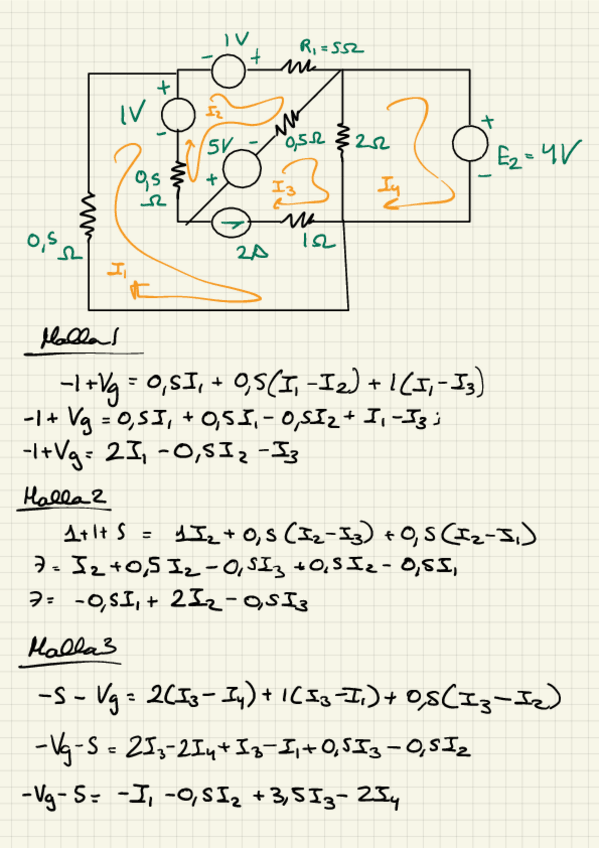 1V
- +
R₁=5Ω
+
1V
-
I₂
5V -
+
0,5Ω
2Ω
+
E₂=4V
-
0,5
Ω
I₃
I₄
0,5
Ω
2A
1Ω
I₁
Malla1
-1+Vg = 0,5I₁ + 0,5(I₁-I₂) + 1(I₁-I₃)
-1+ Vg = 0,5I₁ + 0,5I₁ - 0,5I₂ + I₁-I₃;
-1+Vg = 2I₁ -0,5I₂ -I₃
Malla2
1+1+5 = 1I₂ + 0,5(I₂-I₃) + 0,5(I₂-I₁)
7= I₂ +0,5I₂ - 0,5I₃ +0,5I₂ - 0,5I₁
7= -0,5I₁ + 2I₂ -0,5I₃
Malla3
-5 - Vg = 2(I₃-I₄) + 1(I₃-I₁) + 0,5(I₃-I₂)
-Vg-5 = 2I₃-2I₄+I₃-I₁+0,5I₃-0,5I₂
-Vg-5= -I₁ -0,5I₂ +3,5I₃- 2I₄